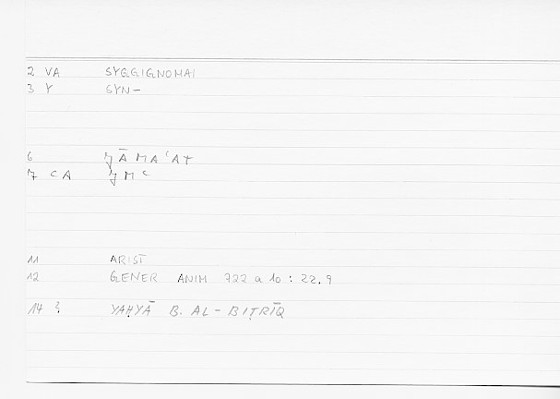 2 VA SYGGIGNOMAI
3 Y SYN-
6 ǧĀMAʿAT
7 CA ǧMʿ
11 ARIST
12 GENER ANIM 722 a 10 : 22.9
14 2 YAḤYĀ B. AL-BIṬRĪQ